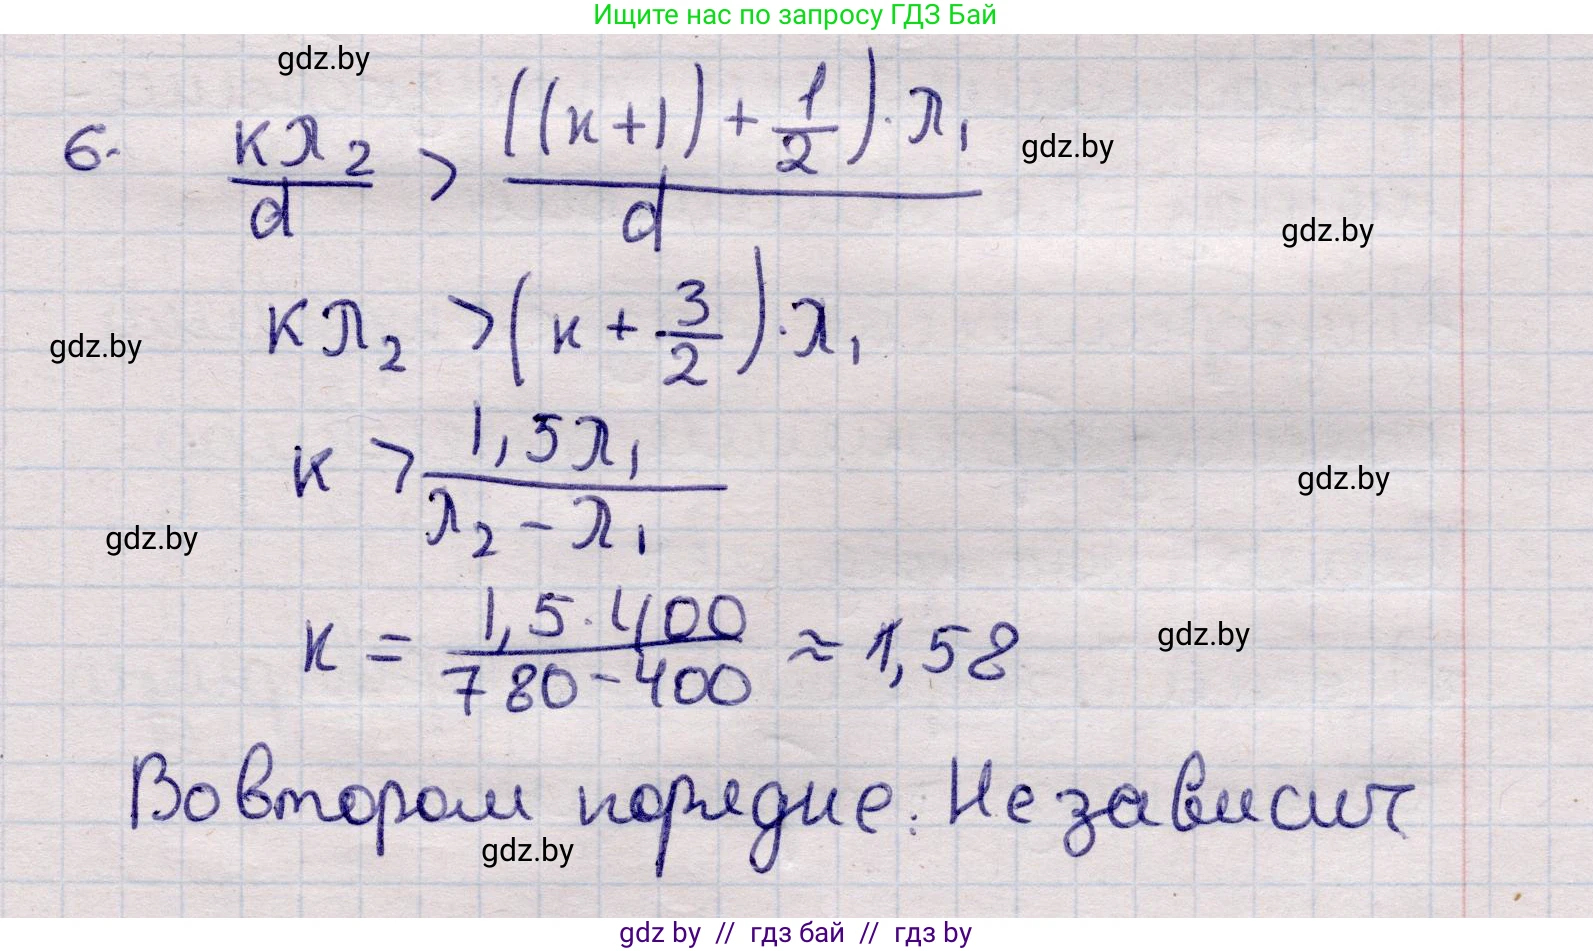 Ищите нас по запросу ГДЗ Бай
gdz.by
6. кλ₂/d > ((к+1) + 1/2) · λ₁/d
gdz.by
gdz.by
кλ₂ > (к + 3/2) · λ₁
gdz.by
к > 1,5λ₁/(λ₂ - λ₁)
gdz.by
gdz.by
к = 1,5·400/(780-400) ≈ 1,58
gdz.by
Во втором порядке. Не зависит
gdz.by
gdz by // гдз бай // гдз by